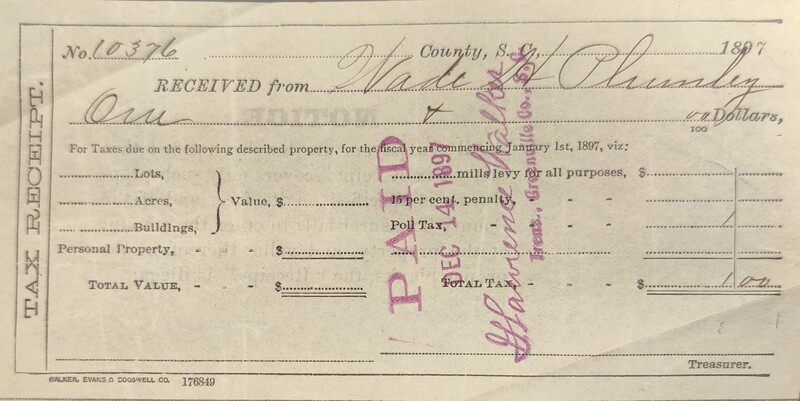 TAX RECEIPT.
No. 10376 County, S. C., 1897
RECEIVED from Wade H Plumley
One & 00/100 Dollars,
For Taxes due on the following described property, for the fiscal year commencing January 1st, 1897, viz:
Lots, mills levy for all purposes, $
Acres, Value, $ 15 per cent. penalty, - -
Buildings, Poll Tax, - - - - 1
Personal Property, - - $
TOTAL VALUE, - - - $ TOTAL TAX, - - - $ 1 00
PAID
DEC 14 1897
Lawrence Walker
Treas., Greenville Co., S. C.
Treasurer.
WALKER, EVANS & COGSWELL CO. 176849